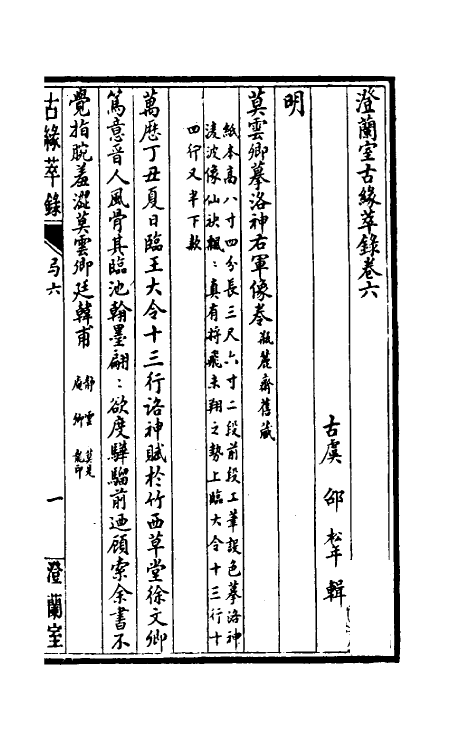 澄蘭室古緣萃錄卷六
古虞 邵松年 輯
明
莫雲卿摹洛神右軍像卷 瓶麓齋舊藏
紙本高八寸四分長三尺六寸二段前段工筆設色摹洛神
淩波像仙袂飄:真有將飛未翔之勢上臨大令十三行十
四行又半下款
萬歷丁丑夏日臨王大令十三行洛神賦於竹西草堂徐文卿
篤意晉人風骨其臨池翰墨翩:欲度驊騮前迺顧索余書不
覺指腕羞澀莫雲卿廷韓甫
古緣萃錄
卷六
一
澄蘭室